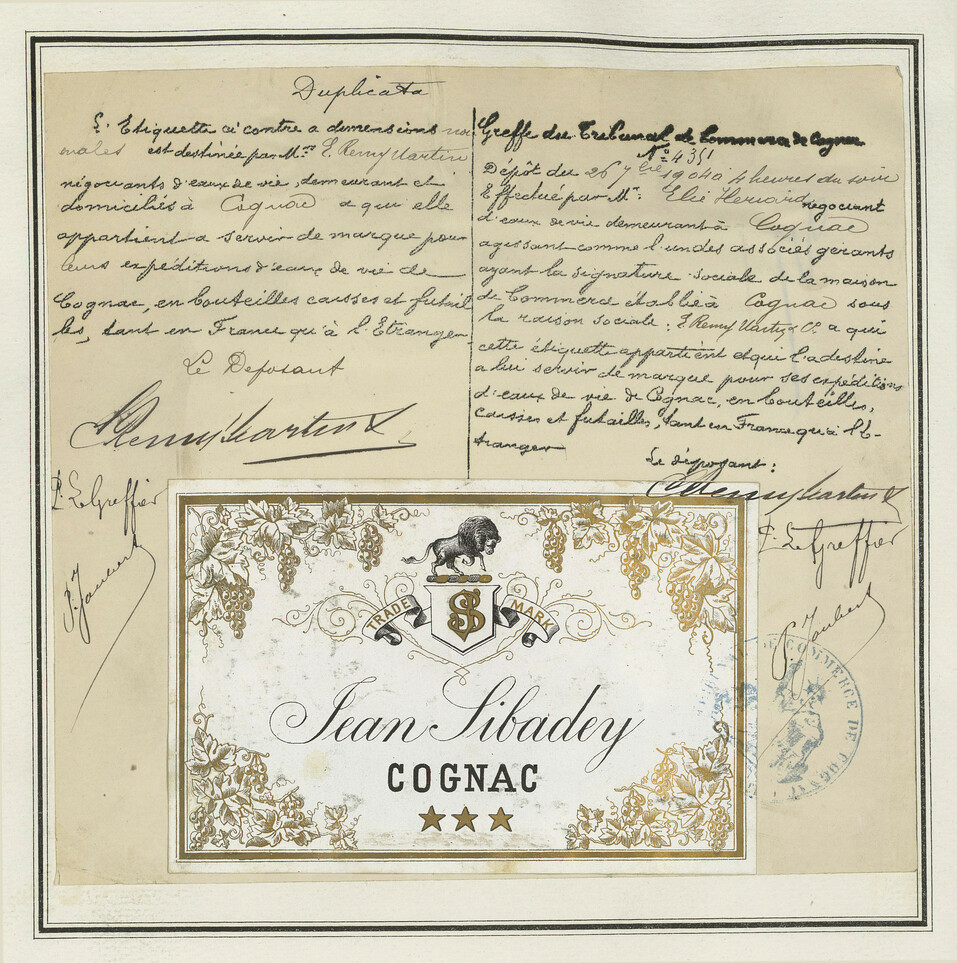 Duplicata
L'Etiquette ci contre a dimensions nor
males est destinée par Mrs E. Remy Martin
négociants d'eaux de vie, demeurant et
domiciliés à Cognac a qui elle
appartient a servir de marque pour
leurs expéditions d'eaux de vie de
Cognac, en bouteilles caisses et futail
les, tant en France qu'à l'Etranger
Le Déposant
E Remy Martin &
P. Le Greffier
P. Joubert
Greffe du Tribunal de Commerce de Cognac
No 4351
Dépôt du 26 7bre 1904 à 4 heures du soir
Effectué par Mr Elie négociant
d'eaux de vie demeurant à Cognac
agissant comme l'un des associés gérants
ayant la signature sociale de la maison
de Commerce établie à Cognac sous
la raison sociale: E. Remy Martin & Co a qui
cette étiquette appartient et qui l'a destine
a lui servir de marque pour ses expéditions
d'eaux de vie de Cognac, en bouteilles,
caisses et futailles, tant en France qu'à l'E-
tranger
Le déposant:
E Remy Martin &
P. Le Greffier
P. Joubert
TRADE MARK
JS
Jean Sibadey
COGNAC
DE COMMERCE DE COGNAC